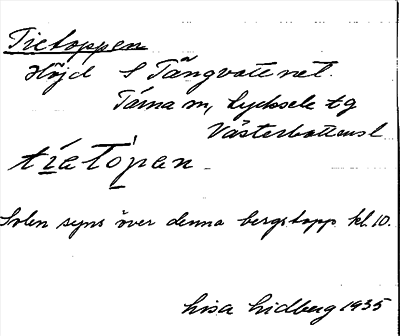 Tietoppen
Höjd S Tängvattnet.
Tärna sn, Lycksele tg
Västerbottens l
tíetòpen
Solen syns över denna bergstopp kl. 10.
Lisa Lidberg 1935